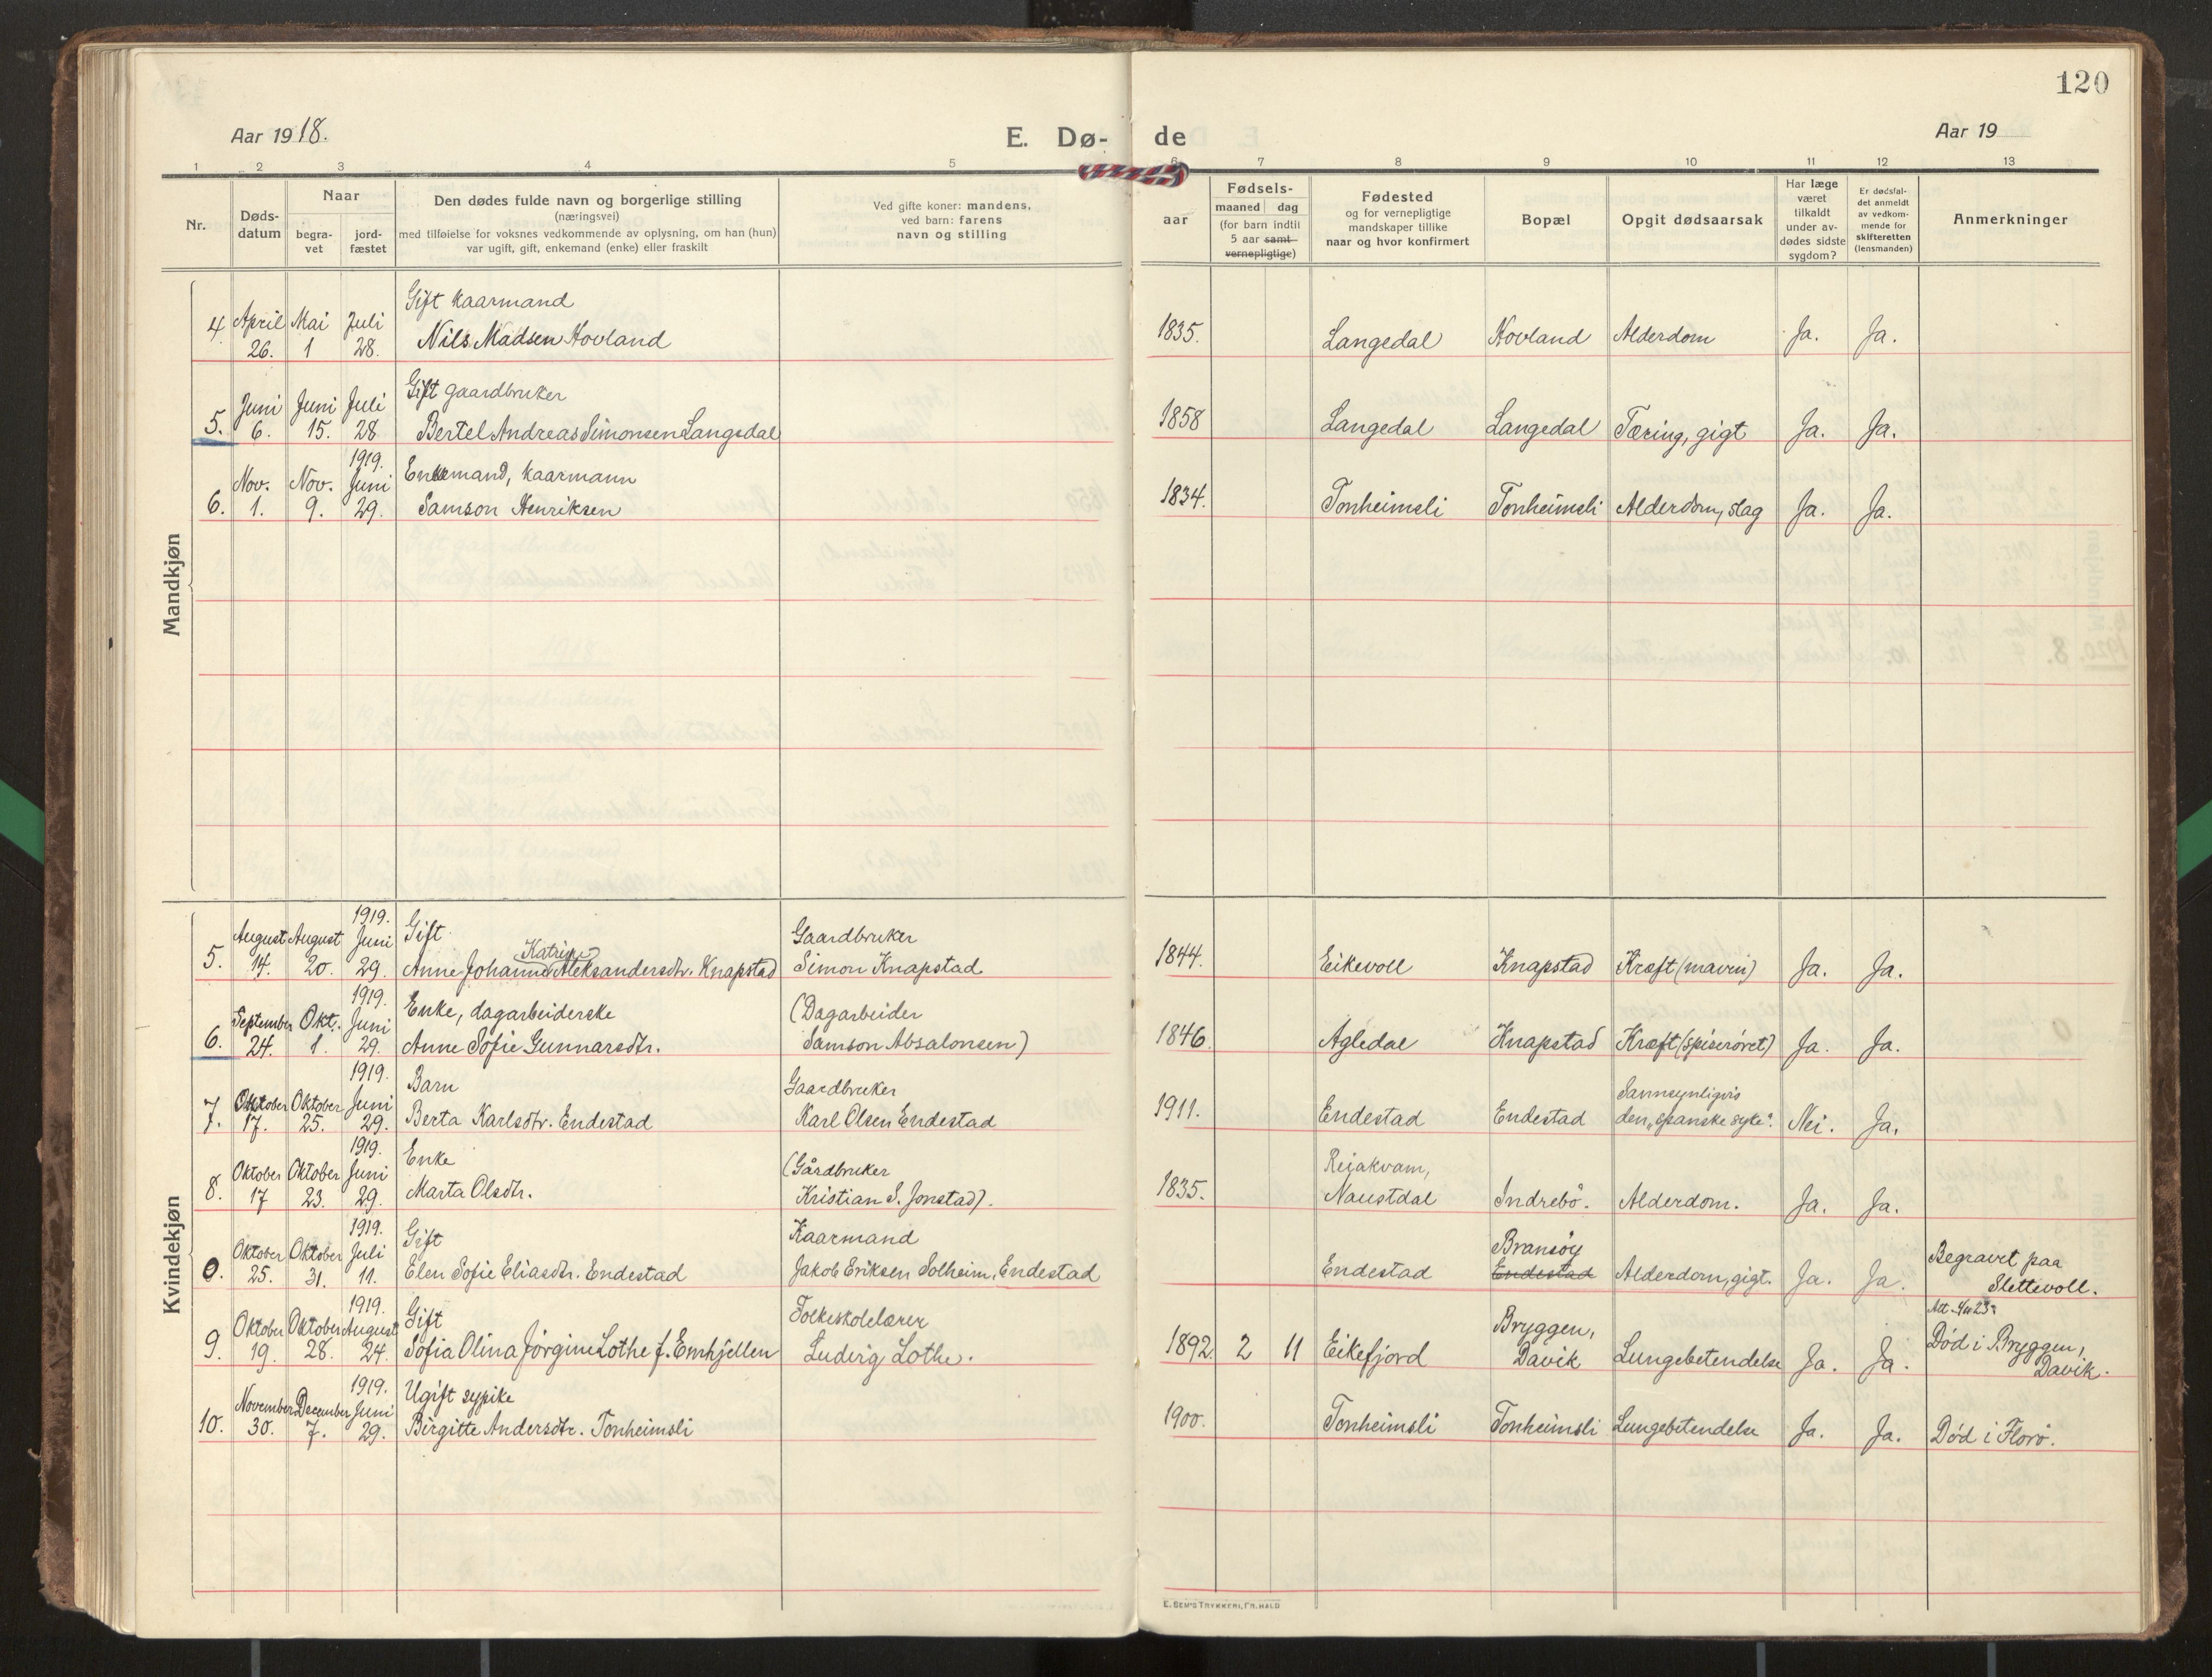 120
Aar 1918.
E. Dø-
de
Aar 19
1 2 3 4 5 6 7 8 9 10 11 12 13
Nr.
Døds-
datum
Naar
begra-
vet
jord-
fæstet
Den dødes fulde navn og borgerlige stilling
(næringsvei)
med tilføielse for voksnes vedkommende av oplysning, om han (hun)
var ugift, gift, enkemand (enke) eller fraskilt
Ved gifte koner: mandens,
ved barn: farens
navn og stilling
aar
Fødsels-
maaned dag
(for barn indtil
5 aar samt
vernepligtige)
Fødested
og for vernepligtige
mandskaper tillike
naar og hvor konfirmert
Bopæl
Opgit dødsaarsak
Har læge
været
tilkaldt
under av-
dødes sidste
sygdom?
Er dødsfal-
det anmeldt
av vedkom-
mende for
skifteretten
(lensmanden)
Anmerkninger
Mandkjøn
Gift kaarmand
4. April Mai Juli
26. 1 28. Nils Madsen Hovland 1835. Langedal Hovland Alderdom Ja. Ja.
Gift gaardbruker
Juni Juni Juli
5. 6. 15. 28 Bertel Andreas Simonsen Langedal 1858 Langedal Langedal Tæring, gigt Ja. Ja.
1919.
Nov. Nov. Juni Enkemand, kaarmann
6. 1. 9. 29. Samson Henriksen 1834. Tonheimsli Tonheimsli Alderdom, slag Ja. Ja.
Kvindekjøn
1919.
August August Juni Gift. Gaardbruker
Katrine
5. 14. 20. 29. Anne Johanne Aleksandersdtr. Knapstad Simon Knapstad 1844. Eikevoll Knapstad Kræft (maven) Ja. Ja.
1919.
September Okt. Juni Enke, dagarbeiderske (Dagarbeider
6. 24. 1. 29. Anne Sofie Gunnarsdtr. Samson Absalonsen) 1846. Agledal Knapstad Kræft (spiserøret) Ja. Ja.
1919.
Oktober Oktober Juni Barn Gaardbruker Sannsynligvis
7. 17. 25. 29. Berta Karlsdtr. Endestad Karl Olsen Endestad 1911. Endestad Endestad den "spanske syke". Nei. Ja.
1919.
Oktober Oktober Juni Enke (Gårdbruker Reiakvam,
8. 17 23. 29. Marta Olsdtr. Kristian S. Jonstad). 1835. Naustdal Indrebö. Alderdom. Ja. Ja.
1919.
Oktober Oktober Juli Gift Kaarmand Bransöy Begravet paa
0. 25. 31. 11. Elen Sofie Eliasdtr. Endestad Jakob Eriksen Solheim, Endestad Endestad Endestad Alderdom, gigt. Ja. Ja. Slettevoll.
1919.
Oktober Oktober August Gift Folkeskolelærer Bryggen, Død i Bryggen,
9. 19. 28. 24. Sofia Olina Jörgine Lothe f. Emhjellen Ludvig Lothe. 1892. 2 11 Eikefjord Davik Lungebetendelse Ja. Ja. Davik.
1919.
November December Juni Ugift sypike
10. 30. 7. 29. Birgitte Andersdtr. Tonheimsli 1900. Tonheimsli Tonheimsli Lungebetendelse Ja. Ja. Död i Florö.
E. SEM'S TRYKKERI, FR. HALD